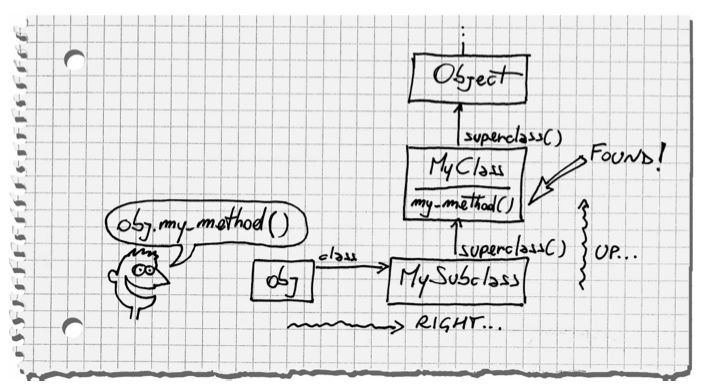 Object
superclass()
MyClass
my_method()
FOUND!
obj.my_method()
superclass()
UP...
class
obj
MySubclass
RIGHT...